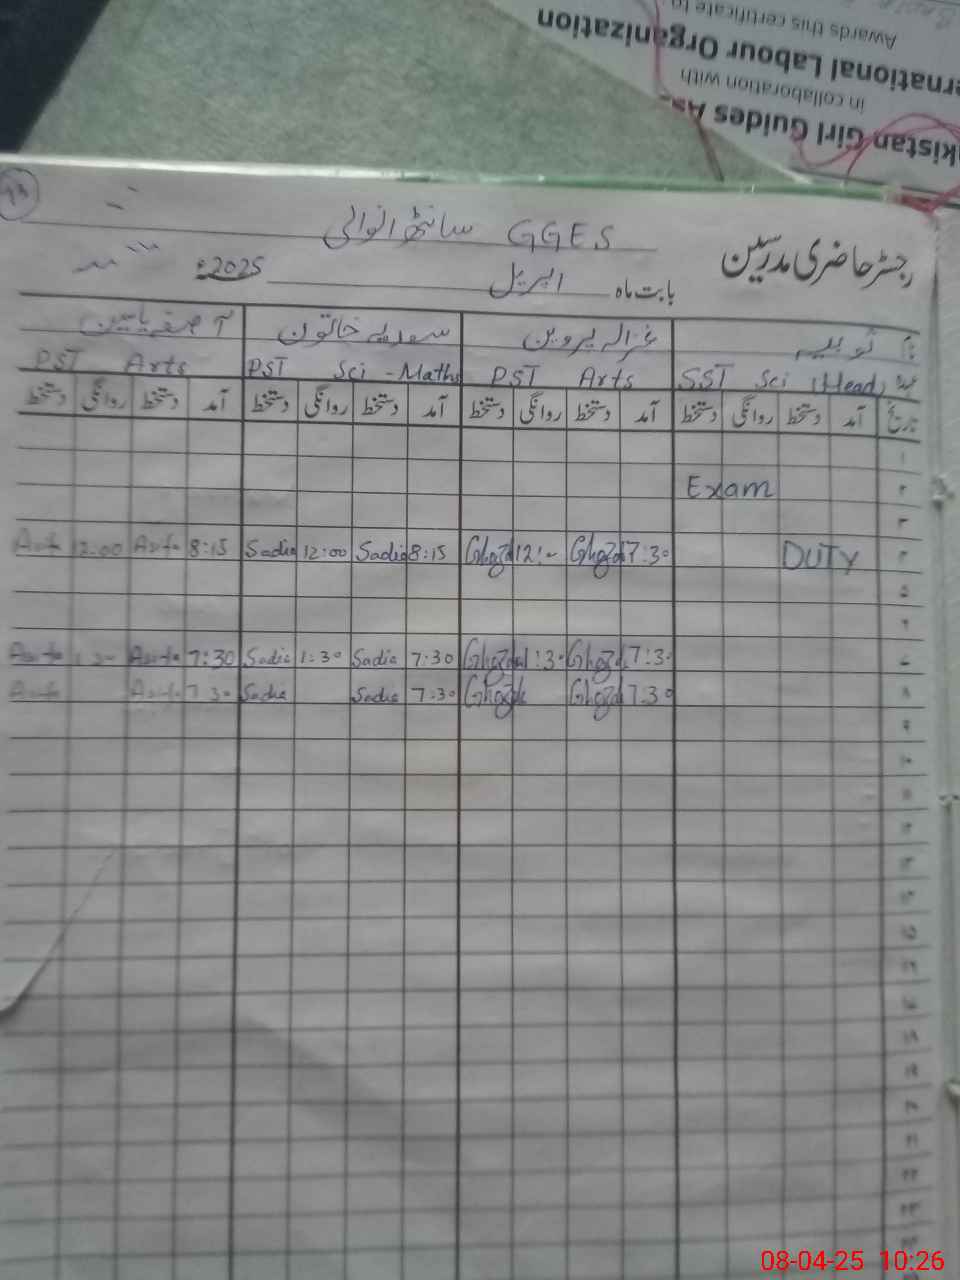 Awards this certificate to
International Labour Organization
in collaboration with
Pakistan Girl Guides Ass
13
GGES سانٹھرانوالی
رجسٹر حاضری مدرسین
بابت ماہ اپریل 2025ء
نام ثوبیہ غزالہ پروین سعدیہ خاتون آصفہ یاسین
عہدہ SST Sci (Head) PST Arts PST Sci - Maths PST Arts
تاریخ آمد دستخط روانگی دستخط آمد دستخط روانگی دستخط آمد دستخط روانگی دستخط آمد دستخط روانگی دستخط
۱
۲ Exam
۳
۴ DUTY 7:30 Ghazal 12:- Ghazal 8:15 Sadia 12:00 Sadia 8:15 Asifa 12:00 Asifa
۵
۶
۷ 7:30 Ghazal 1:30 Ghazal 7:30 Sadia 1:30 Sadia 7:30 Asifa 1:30 Asifa
۸ 7:30 Ghazal Ghazal 7:30 Sadia Sadia 7:30 Asifa Asifa
۹
۱۰
۱۱
۱۲
۱۳
۱۴
۱۵
۱۶
۱۷
۱۸
۱۹
۲۰
۲۱
۲۲
۲۳
08-04-25 10:26